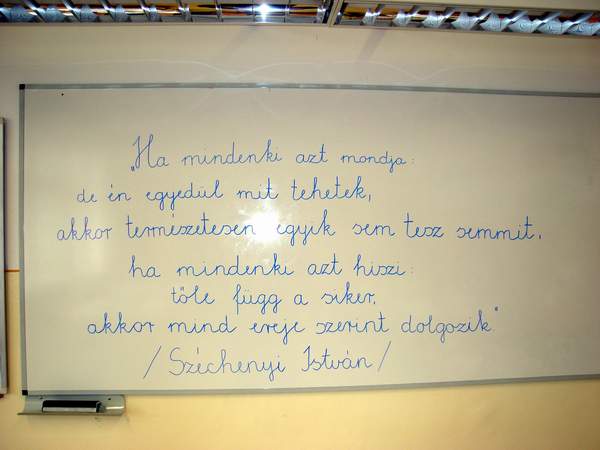 „Ha mindenki azt mondja:
de én egyedül mit tehetek,
akkor természetesen egyik sem tesz semmit.
ha mindenki azt hiszi:
tőle függ a siker,
akkor mind ereje szerint dolgozik"
/Széchenyi István/